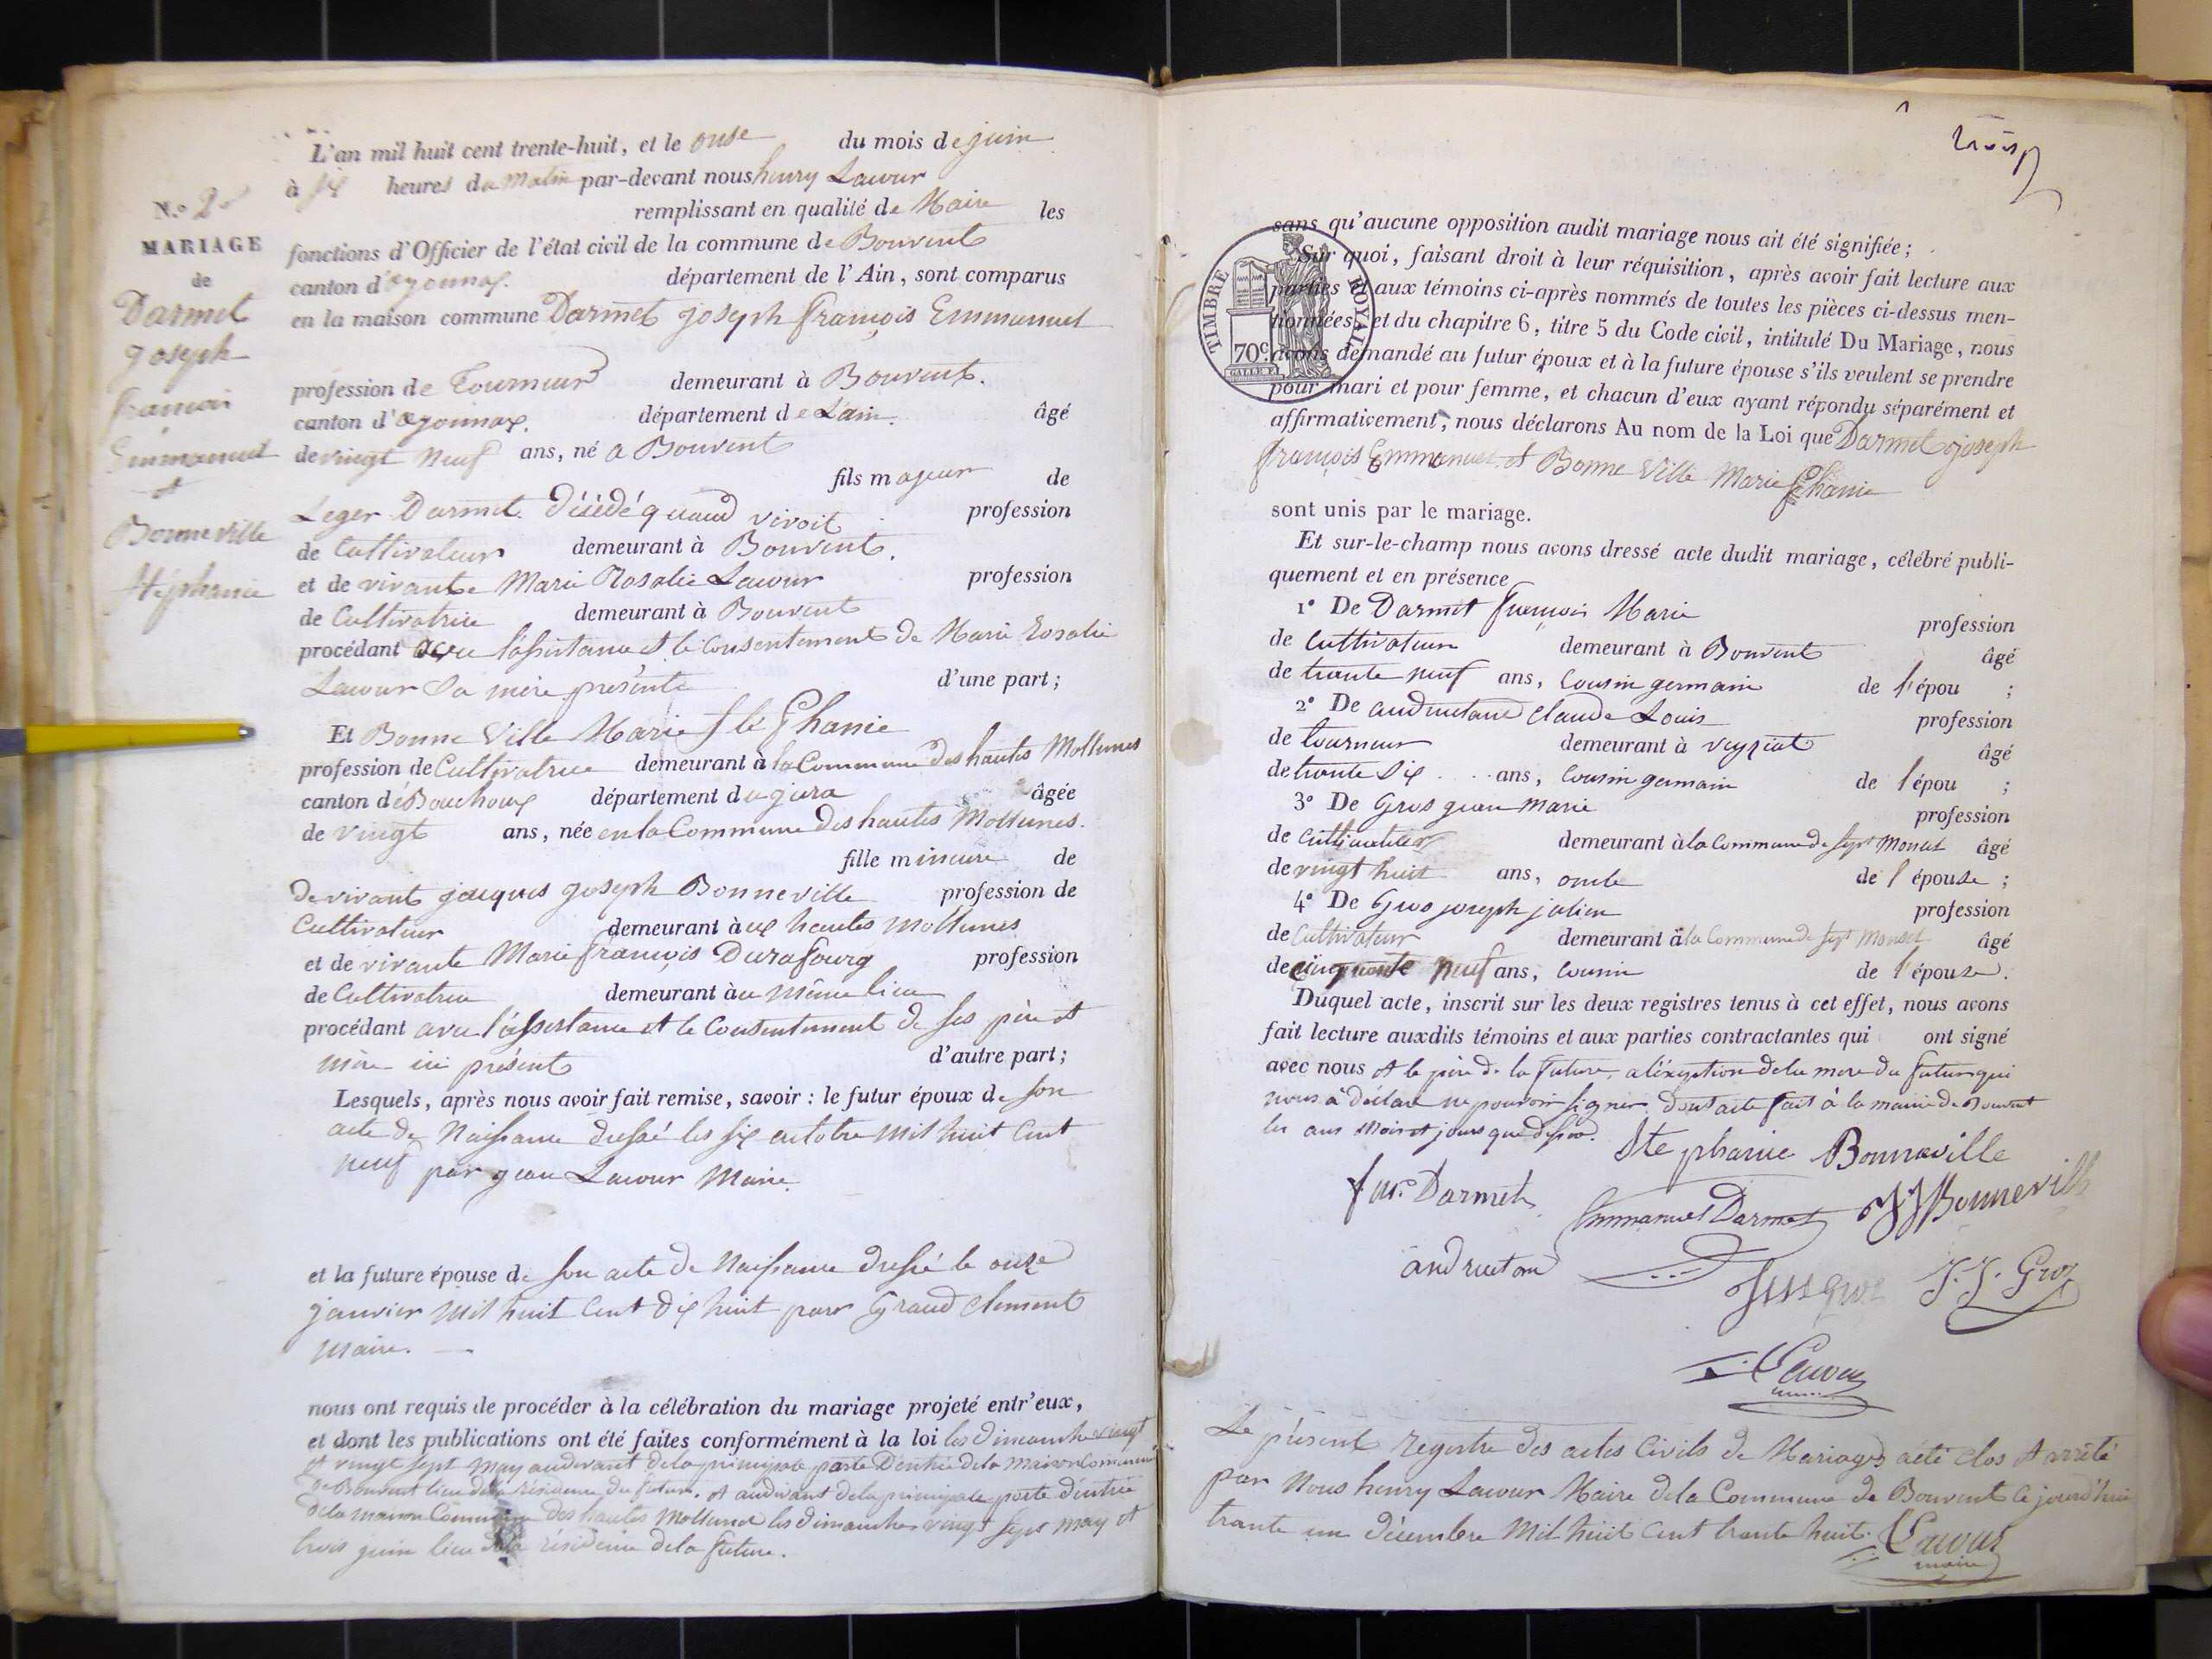 L'an mil huit cent trente-huit, et le onse du mois de juin
à six heures du Matin par-devant nous henry Lacour
remplissant en qualité de Maire les
fonctions d'Officier de l'état civil de la commune de Bouvent
canton d'oyonnax. département de l'Ain, sont comparus
en la maison commune Darmet joseph françois Emmanuel
profession de Tourneur demeurant à Bouvent.
canton d'oyonnax. département de L'ain. âgé
de vingt neuf ans, né a Bouvent
fils majeur de
Leger Darmet. décédé quand vivoit profession
de Cultivateur demeurant à Bouvent.
et de vivante Marie Rosalie Lacour profession
de Cultivatrice demeurant à Bouvent
procédant avec l'assistance et le consentement de Marie Rosalie
Lacour Sa mère présente d'une part;
Et Bonne Ville Marie Sté Phanie
profession de Cultivatrice demeurant à la Commune des hautes Mollunes
canton de Bouchoux département du jura âgée
de vingt ans, née en la Commune des hautes Mollunes.
fille mineure de
de vivant jacques joseph Bonneville profession de
Cultivateur demeurant à ux hautes mollunes
et de vivante Marie françois Durafourg profession
de Cultivatrice demeurant à u même lieu
procédant avec l'assistance et le Consentement de ses père et
mère ici présent d'autre part;
Lesquels, après nous avoir fait remise, savoir: le futur époux de son
acte de Naissance dressé les six octobre mil huit Cent
neuf par jean Lacour Maire.
et la future épouse de son acte de Naissance dressé le onze
janvier Mil huit Cent dix huit par Grand Clement
Maire.
nous ont requis de procéder à la célébration du mariage projeté entr'eux,
et dont les publications ont été faites conformément à la loi les dimanche vingt
et vingt sept may audevant de la principale porte D'entrée de la Maison Commune
de Bouvent lieu de la résidence du futur. et audevant dela principale porte d'entrée
de la maison Commune des hautes Mollune les dimanche vingt sept may et
trois juin lieu de la résidence dela future.
N.º 2
MARIAGE
de
Darmet
joseph
françois
Emmanuel
et
Bonneville
Stéphanie
trois
TIMBRE ROYAL
70c
sans qu'aucune opposition audit mariage nous ait été signifiée;
Sur quoi, faisant droit à leur réquisition, après avoir fait lecture aux
parties et aux témoins ci-après nommés de toutes les pièces ci-dessus men-
tionnées, et du chapitre 6, titre 5 du Code civil, intitulé Du Mariage, nous
avons demandé au futur époux et à la future épouse s'ils veulent se prendre
pour mari et pour femme, et chacun d'eux ayant répondu séparément et
affirmativement, nous déclarons Au nom de la Loi que Darmet joseph
françois Emmanuel et Bonne Ville Marie Sté Phanie
sont unis par le mariage.
Et sur-le-champ nous avons dressé acte dudit mariage, célébré publi-
quement et en présence
1º De Darmet françois Marie profession
de Cultivateur demeurant à Bouvent âgé
de trante neuf ans, Cousin germain de l'épou ;
2º De andruetand Claude Louis profession
de tourneur demeurant à veyziat âgé
de trante six ans, Cousin germain de l'épou ;
3º De Gros jean Marie profession
de Cultivateur demeurant à la Commune de Sept Moncel âgé
de vingt huit ans, oncle de l'épouse ;
4º De Gros joseph julien profession
de Cultivateur demeurant à la Commune de sept Moncel âgé
de cinquante neuf ans, Cousin de l'épouse.
Duquel acte, inscrit sur les deux registres tenus à cet effet, nous avons
fait lecture auxdits témoins et aux parties contractantes qui ont signé
avec nous et le père de la future, a l'éxception dela mere du futur qui
nous à déclaré ne pouvoir signer. dont acte fait à la mairie de Bouvent
les ans Mois et jours que dessus.
Stephanie Bonneville
fois Darmet
Emmanuel Darmet
J J Bonneville
andruetan
J. J. Groz
Lacour
Le présent registre des actes Civils de Mariages a été clos et arrêté
par Nous henry Lacour Maire dela Commune de Bouvent Ce jourd'hui
trante un décembre Mil huit Cent trante huit. Lacour
maire